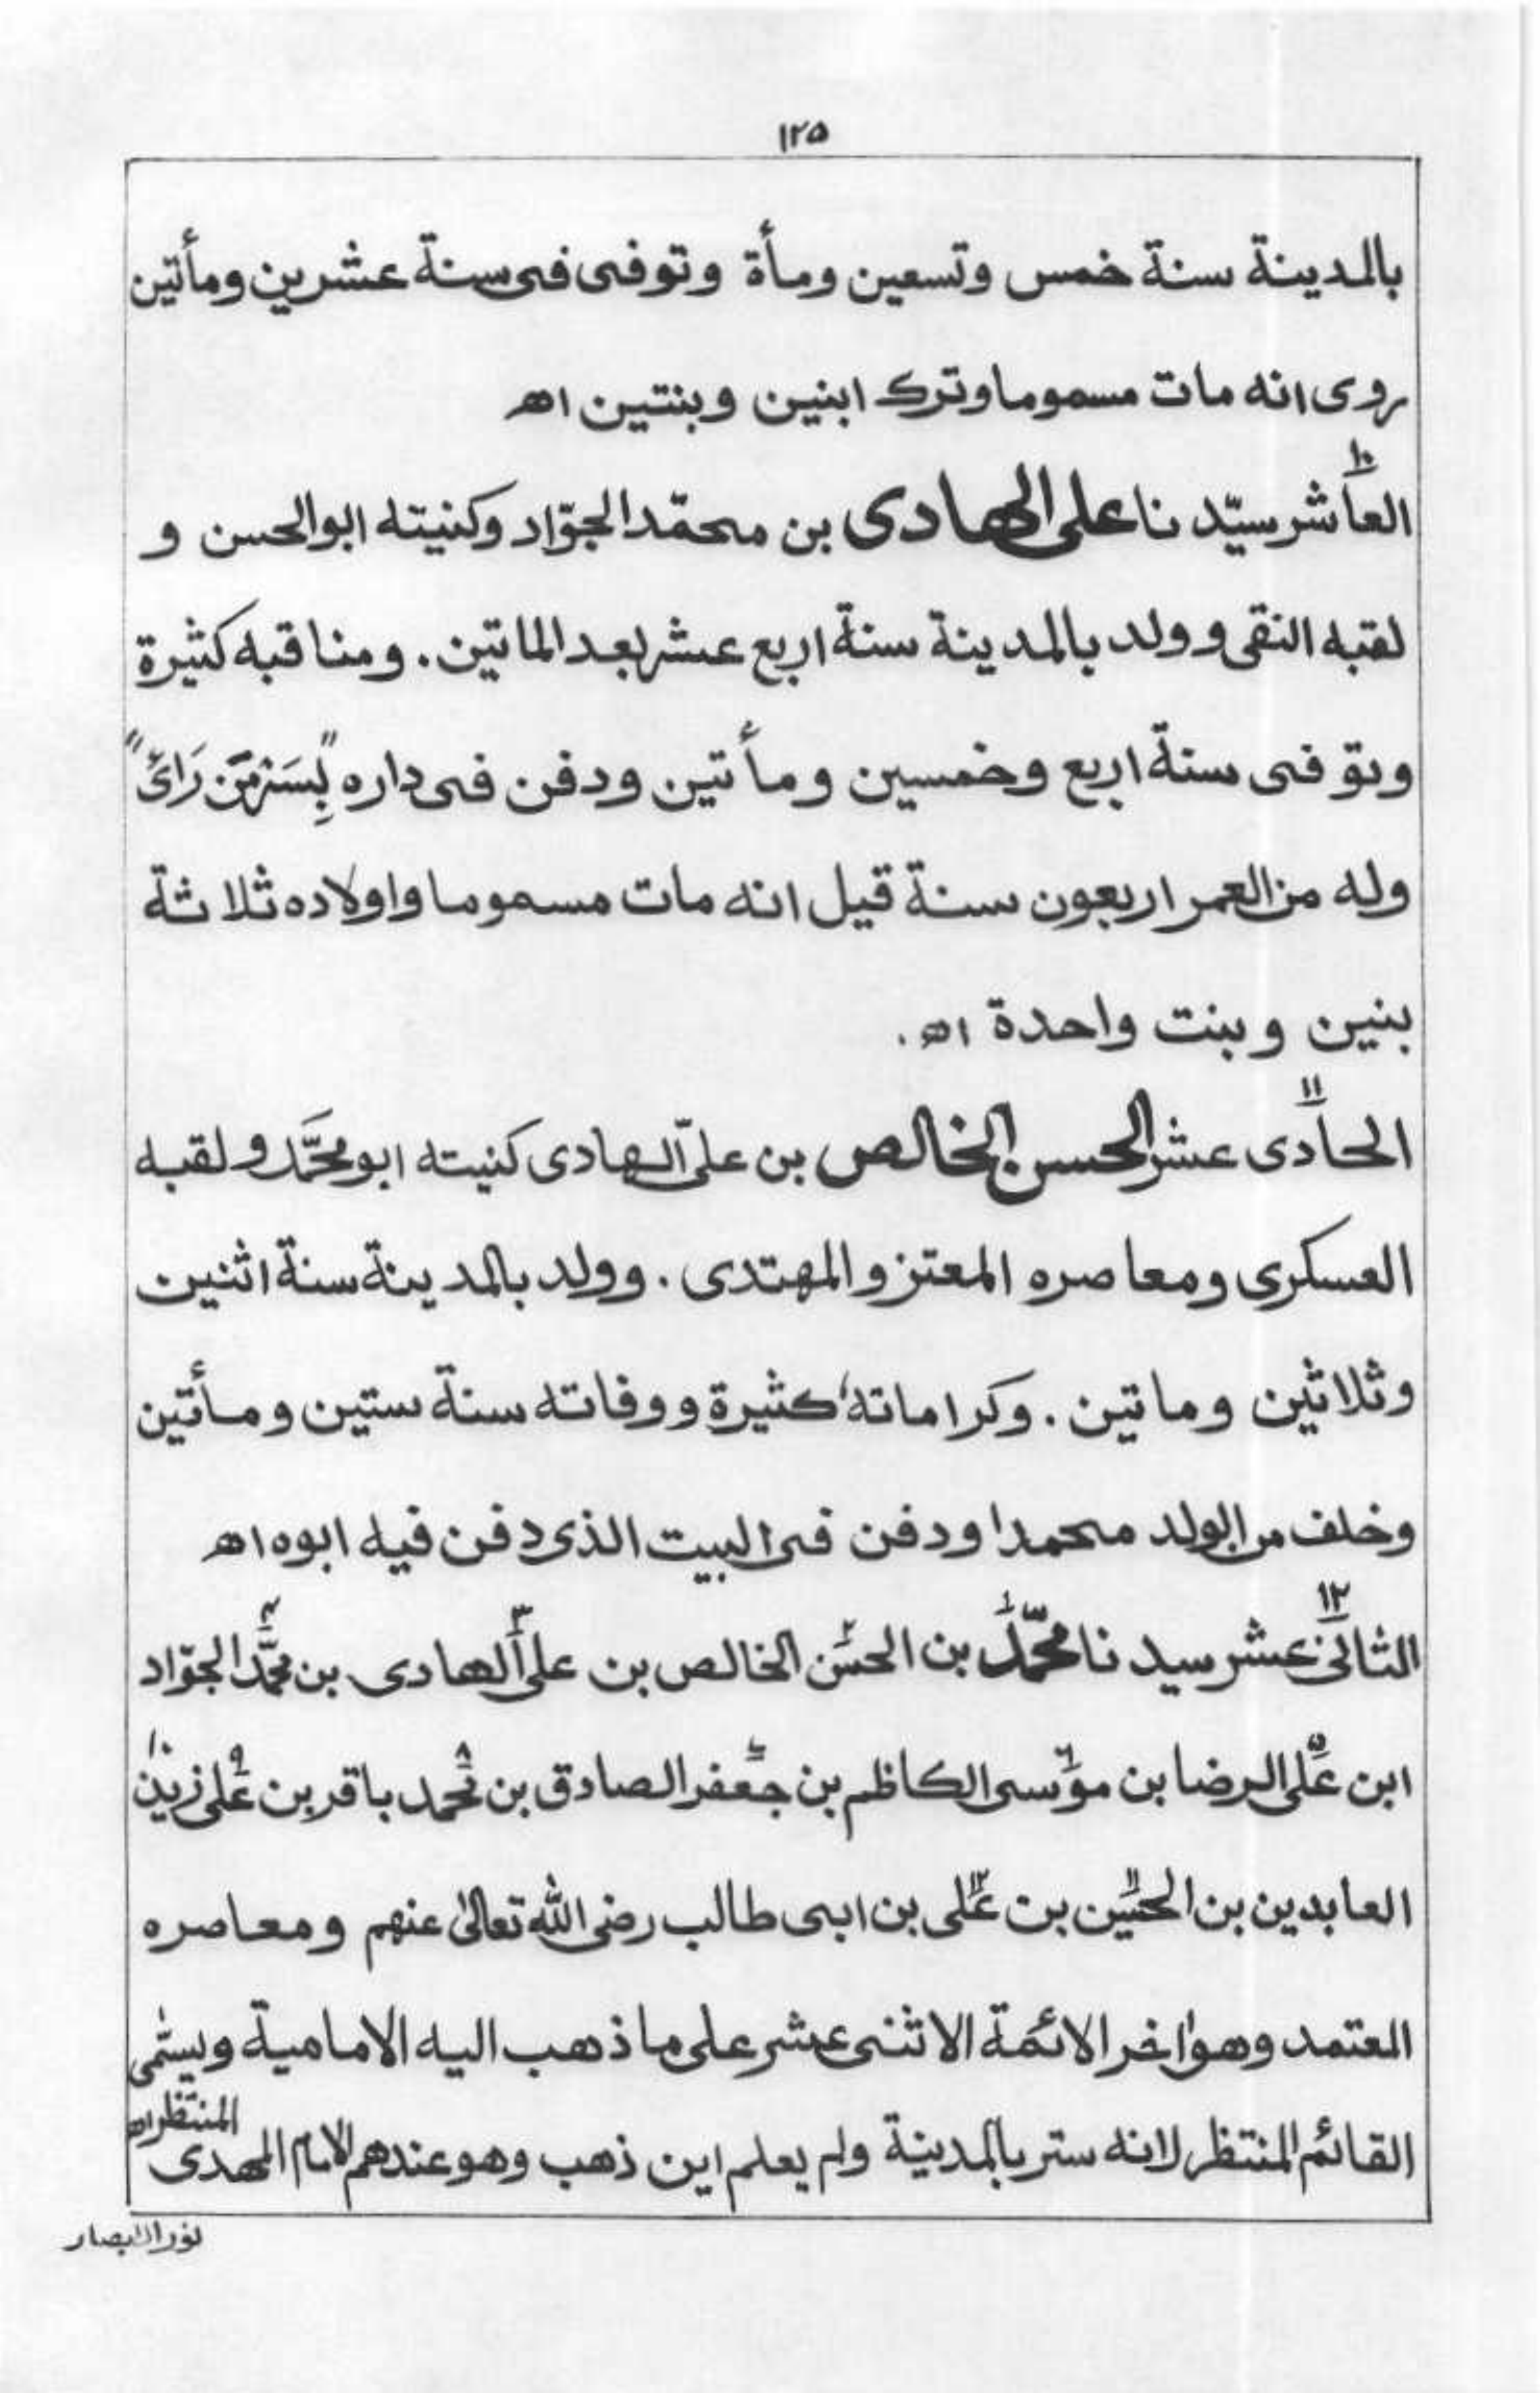 ١٢٥
بالمدينة سنة خمس وتسعين ومأة وتوفى فى سنة عشرين ومأتين
روى انه مات مسموما وترك ابنين وبنتين اھ
١٠
العاشر سيّد نا على الهادى بن محمّد الجوّاد وكنيته ابوالحسن و
لقبه النقى و ولد بالمدينة سنة اربع عشر بعد الماتين. ومناقبه كثيرة
وتوفى سنة اربع وخمسين ومأتين ودفن فى داره "بِسَرَّمَن رَائَ"
وله من العمر اربعون سنة قيل انه مات مسموما واولاده ثلاثة
بنين وبنت واحدة اھ.
١١
الحادى عشر الحسن الخالص بن علىّ الهادى كنيته ابومحمَّد ولقبه
العسكرى ومعاصره المعتز والمهتدى. وولد بالمدينة سنة اثنين
وثلاثين وماتين. وكراماته كثيرة ووفاته سنة ستين ومأتين
وخلف من الولد محمدا ودفن فى البيت الذى دفن فيه ابوه اھ
١٢
الثانى عشر سيد نا محمّد١ بن الحسن٢ الخالص بن على٣ الهادى بن محمَّد٤ الجوّاد
ابن على٥ الرضا بن موسى٦ الكاظم بن جعفر٧ الصادق بن محمد٨ باقر بن على٩ زين١٠
العابدين بن الحسين١١ بن على١٢ بن ابى طالب رضى الله تعالىٰ عنهم ومعاصره
المعتمد وهو اٰخر الائمة الاثنى عشر على ما ذهب اليه الامامية ويسمّٰى
القائم المنتظر لانه ستر بالمدينة ولم يعلم اين ذهب وهو عندهم الامام المهدى
المنتظر اھ
نورالابصار